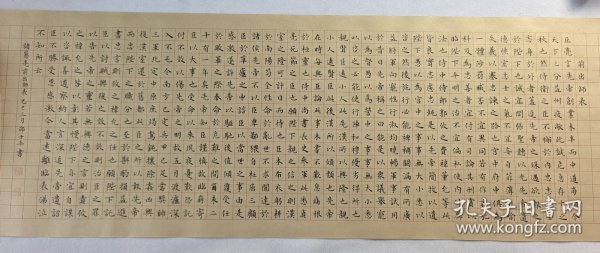 前出師表
臣亮言先帝創業未半而中道崩殂今
天下三分益州疲敝此誠危急存亡之
秋也然侍衛之臣不懈於內忠
志之士忘身於外者蓋追先帝之殊遇
欲報之於陛下也誠宜開張聖聽以光先帝遺
德恢弘志士之氣不宜妄自菲薄引喻
失義以塞忠諫之路也宮中府中俱為
一體陟罰臧否不宜異同若有作奸
犯科及為忠善者宜付有司論其刑賞以
昭陛下平明之治不宜偏私使內外異
法也侍中侍郎郭攸之費禕董允等此
皆良實志慮忠純是以先帝簡拔以遺
陛下愚以為宮中之事事無大小悉以
咨之然後施行必能裨補闕漏有所廣
益將軍向寵性行淑均曉暢軍事試用
於昔日先帝稱之曰能是以眾議舉寵
以為督愚以為營中之事事無大小悉
咨之必能使行陣和穆優劣得所也
親賢臣遠小人此先漢所以興隆也親
小人遠賢臣此後漢所以傾頹也先帝
在時每與臣論此事未嘗不歎息痛恨
於桓靈也侍中尚書長史參軍此悉貞
亮死節之臣也願陛下親之信之則漢
室之隆可計日而待也臣本布衣躬耕
於南陽苟全性命於亂世不求聞達於
諸侯先帝不以臣卑鄙猥自枉屈三顧
臣於草廬之中諮臣以當世之事由是
感激遂許先帝以驅馳後值傾覆受任
於敗軍之際奉命於危難之間爾來二
十有一年矣先帝知臣謹慎故臨崩寄
臣以大事也受命以來夙夜憂歎恐託
付不效以傷先帝之明故五月渡瀘深
入不毛今南方已定兵甲已足當獎帥
三軍北定中原庶竭駑鈍攘除姦凶興
復漢室還於舊都此臣所以報先帝
而忠陛下之職分也至於斟酌損益進
盡忠言則攸之禕允之任也願陛下託
臣以討賊興復之效不效則治臣之罪
以告先帝之靈若無興德之言則責攸
之禕允等之慢以彰其咎陛下亦宜自謀
以咨諏善道察納雅言深追先帝遺詔
臣不勝受恩感激今當遠離臨表涕泣
不知所云
諸葛亮前出師表